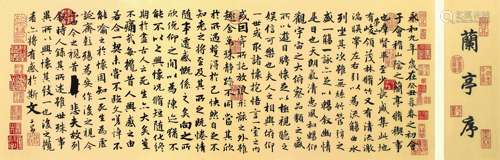 蘭亭序
永和九年歲在癸丑暮春之初會
于會稽山陰之蘭亭脩稧事
也羣賢畢至少長咸集此地
有崇山峻領茂林脩竹又有清流激
湍暎帶左右引以為流觴曲水
列坐其次雖無絲竹管弦之
盛一觴一詠亦足以暢敘幽情
是日也天朗氣清惠風和暢仰
觀宇宙之大俯察品類之盛
所以遊目騁懷足以極視聽之
娛信可樂也夫人之相與俯仰
一世或取諸懷抱悟言一室之內
或因寄所託放浪形骸之外雖
趣舍萬殊靜躁不同當其欣
於所遇蹔得於己怏然自足不
知老之將至及其所之既惓情
隨事遷感慨係之矣向之所欣
俛仰之間以為陳迹猶不
能不以之興懷況脩短隨化終
期於盡古人云死生亦大矣豈
不痛哉每攬昔人興感之由
若合一契未嘗不臨文嗟悼不
能喻之於懷固知一死生為虛
誕齊彭殤為妄作後之視今
亦由今之視昔悲夫故列
敘時人錄其所述雖世殊事
異所以興懷其致一也後之攬
者亦將有感於斯文